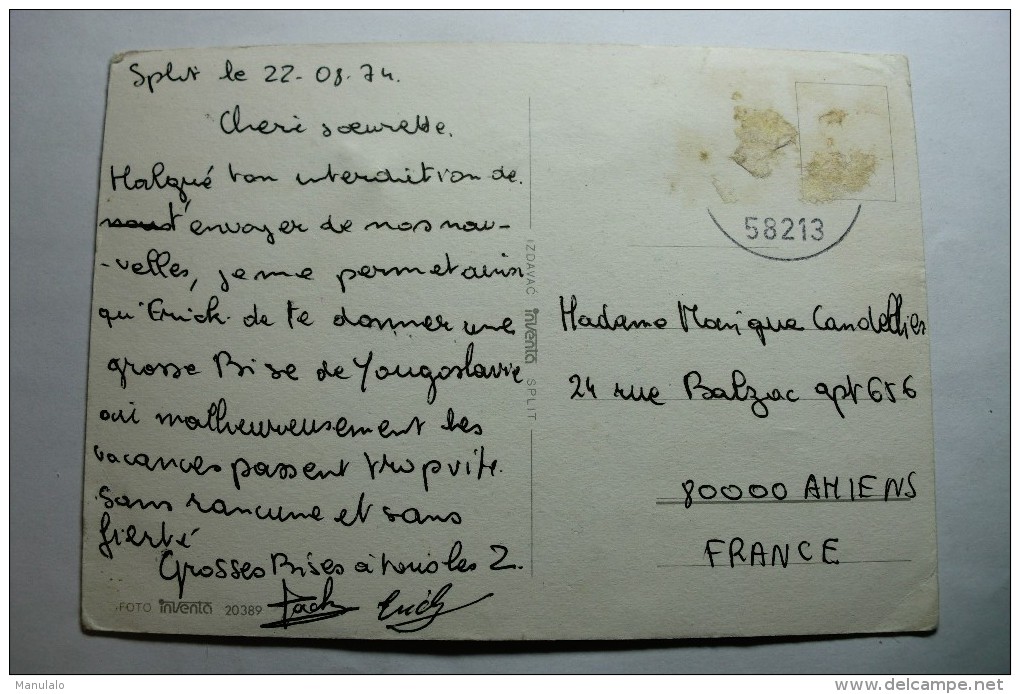 Split le 22-08.74.
Cheri sœurette.
Malgré ton interdiction de
t'envoyer de nos nou-
-velles, je me permet ainsi
qu'Erick de te donner une
grosse Bise de Yougoslavie
où malheureusement les
vacances passent trop vite.
Sans rancune et sans
fierté
Grosses Bises à tous les 2.
Erick
FOTO inventa 20389
IZDAVAČ inventa SPLIT
58213
Madame Monique Candellier
24 rue Balzac apt 656
80000 AMIENS
FRANCE
Manulalo
www.delcampe.net